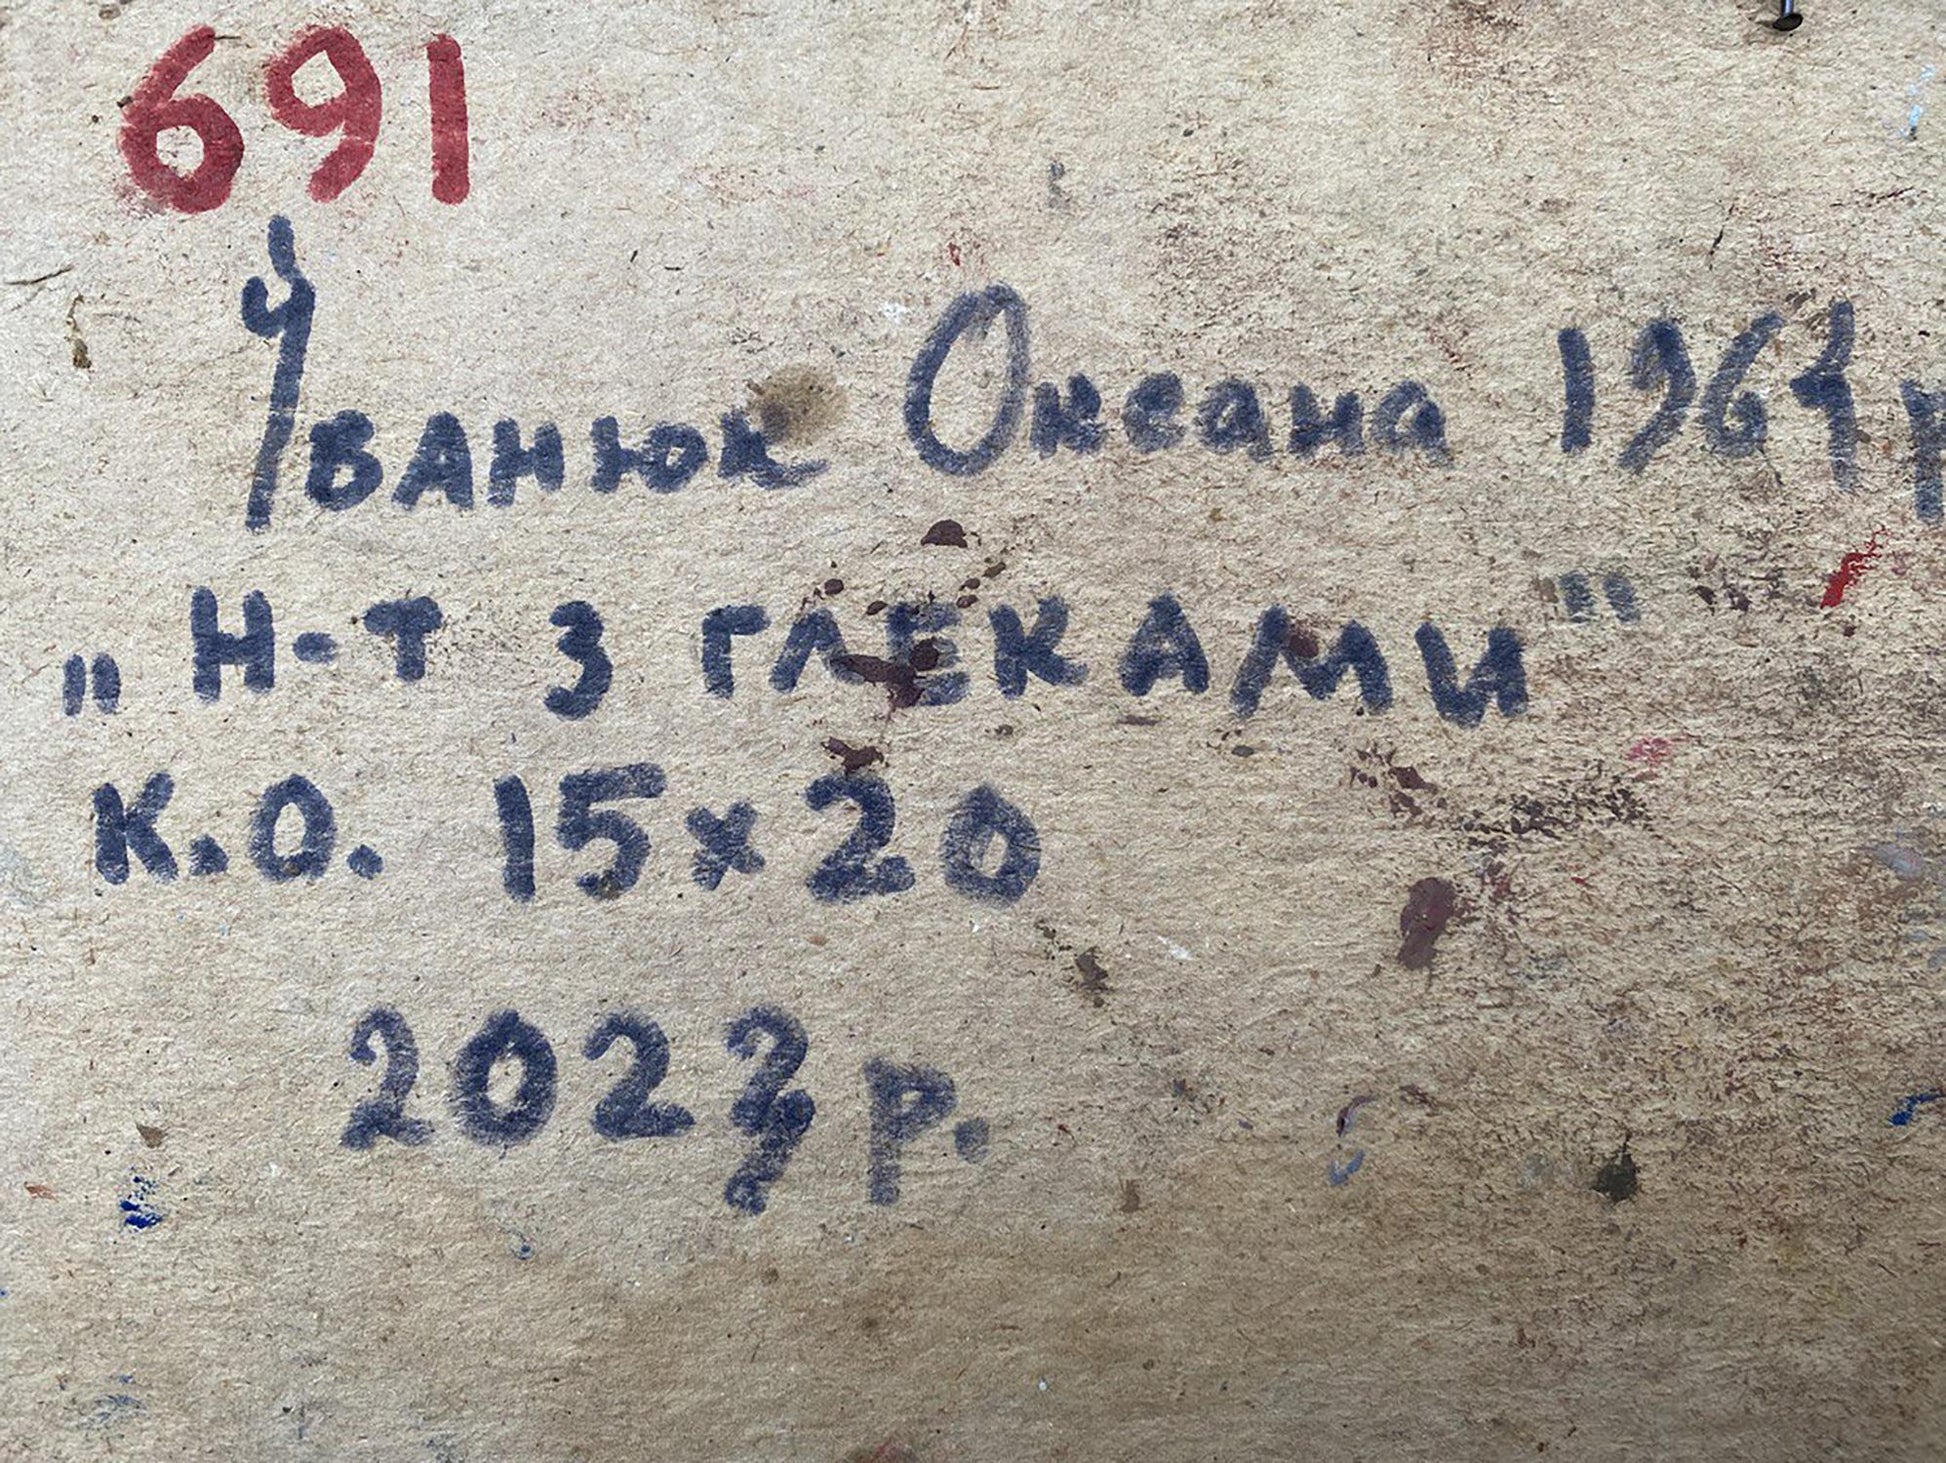 691
Іванюк Оксана 1964 р
„Н-т з глеками"
К.О. 15x20
2023 р.